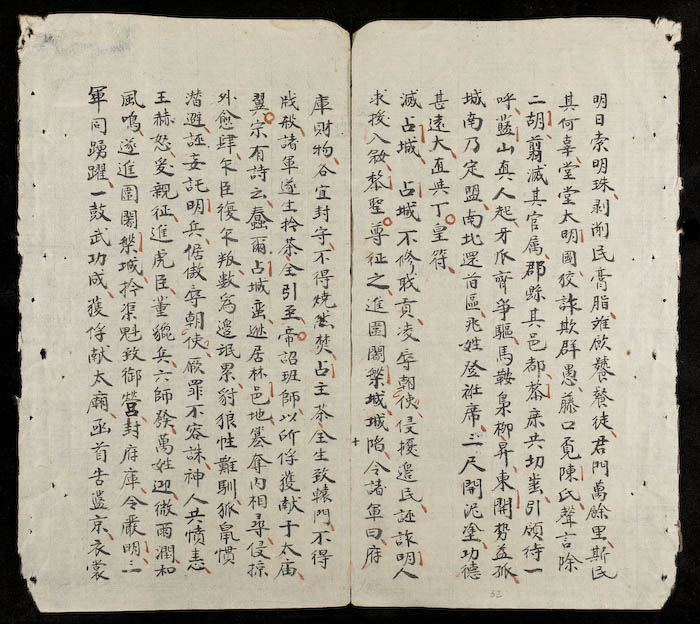 明日索明珠剥削民膏脂难飲饕餮徒君門萬餘里斯民
其何辜堂堂太明國狡詐欺群愚藤口覔陳氏聲言除
二胡翦滅其官属郡縣其邑都黎庶共切齒引頸待一
呼藍山真人起牙爪齊爭驅馬鞍梟柳昇東関勢益孤
城南乃定盟南北還首區兆姓登袵席三尺開泥塗功德
甚遠大直與丁皇符
滅占城 占城不修職貢凌辱朝使侵擾邉民誣詐明人
求援入寇黎聖尊征之進圍闍槃城城陷令諸軍曰府
庫財物各宜封守不得燒然焚占主茶全生致轅門不得
戕殺諸軍遂生拎茶全引至帝詔班師以所俘獲献于太庙
翼宗有詩云蠢爾占城蛮迯居林邑地簒奪内相尋侵掠
外愈肆乍臣復乍叛数為邉氓累豺狼性難馴狐鼠慣
潜避誣妄託明兵倨傲辱朝使厥罪不容誅神人共憤恚
王赫怒爰親征進虎臣董獵兵六師發萬姓迎微雨潤和
風鳴遂進圍闍槃城拎渠魁致御營封府庫令嚴明三
軍同踴躍一鼓武功成獲俘献太廟亟首告藍京衣裳
32